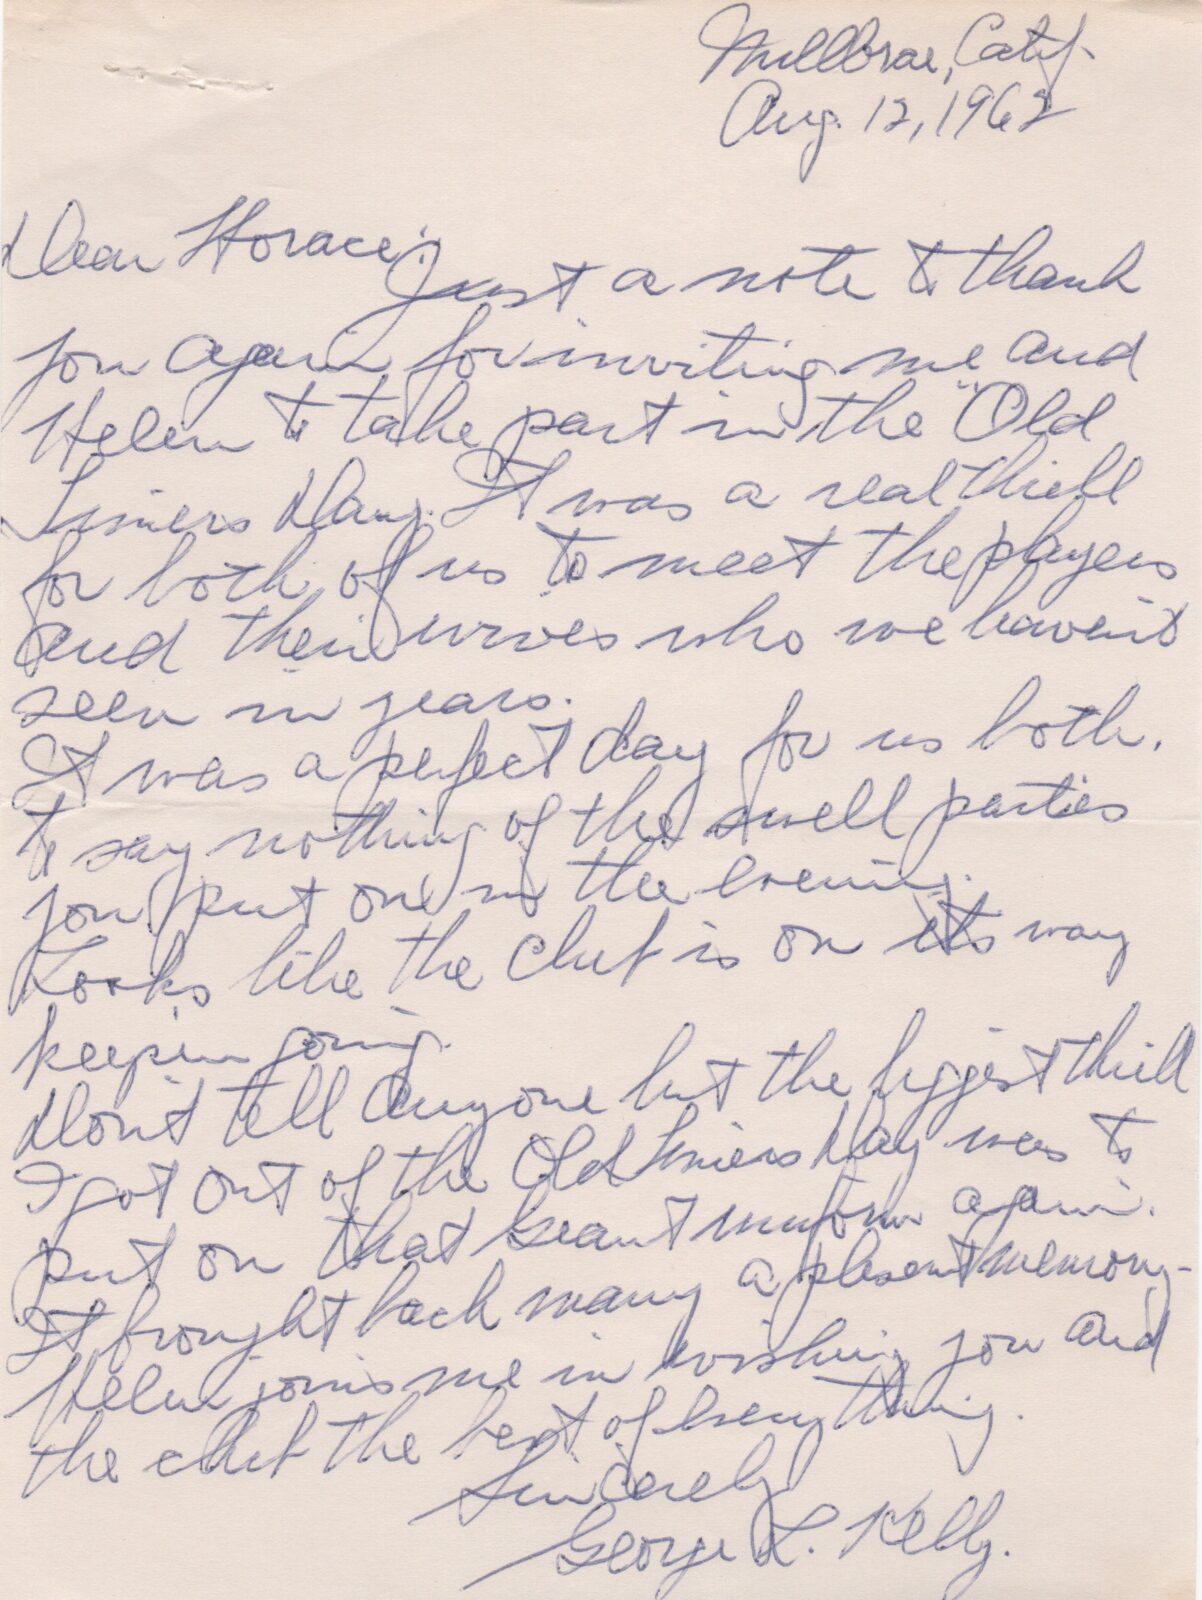 Millbrae, Calif.
Aug. 12, 1962
Dear Horace:
Just a note to thank
you again for inviting me and
Helen to take part in the "Old
Timers Day. It was a real thrill
for both of us to meet the players
and their wives who we haven't
seen in years.
It was a perfect day for us both.
to say nothing of the swell parties
you put on in the evening.
Looks like the club is on its way
keep'in going.
Don't tell anyone but the biggest thrill
I got out of the Old Timers Day was to
put on that Geant uniform again.
It brought back many a plesent memory-
Helen joins me in wishing you and
the club the best of everything.
Sincerely
George L. Kelly.